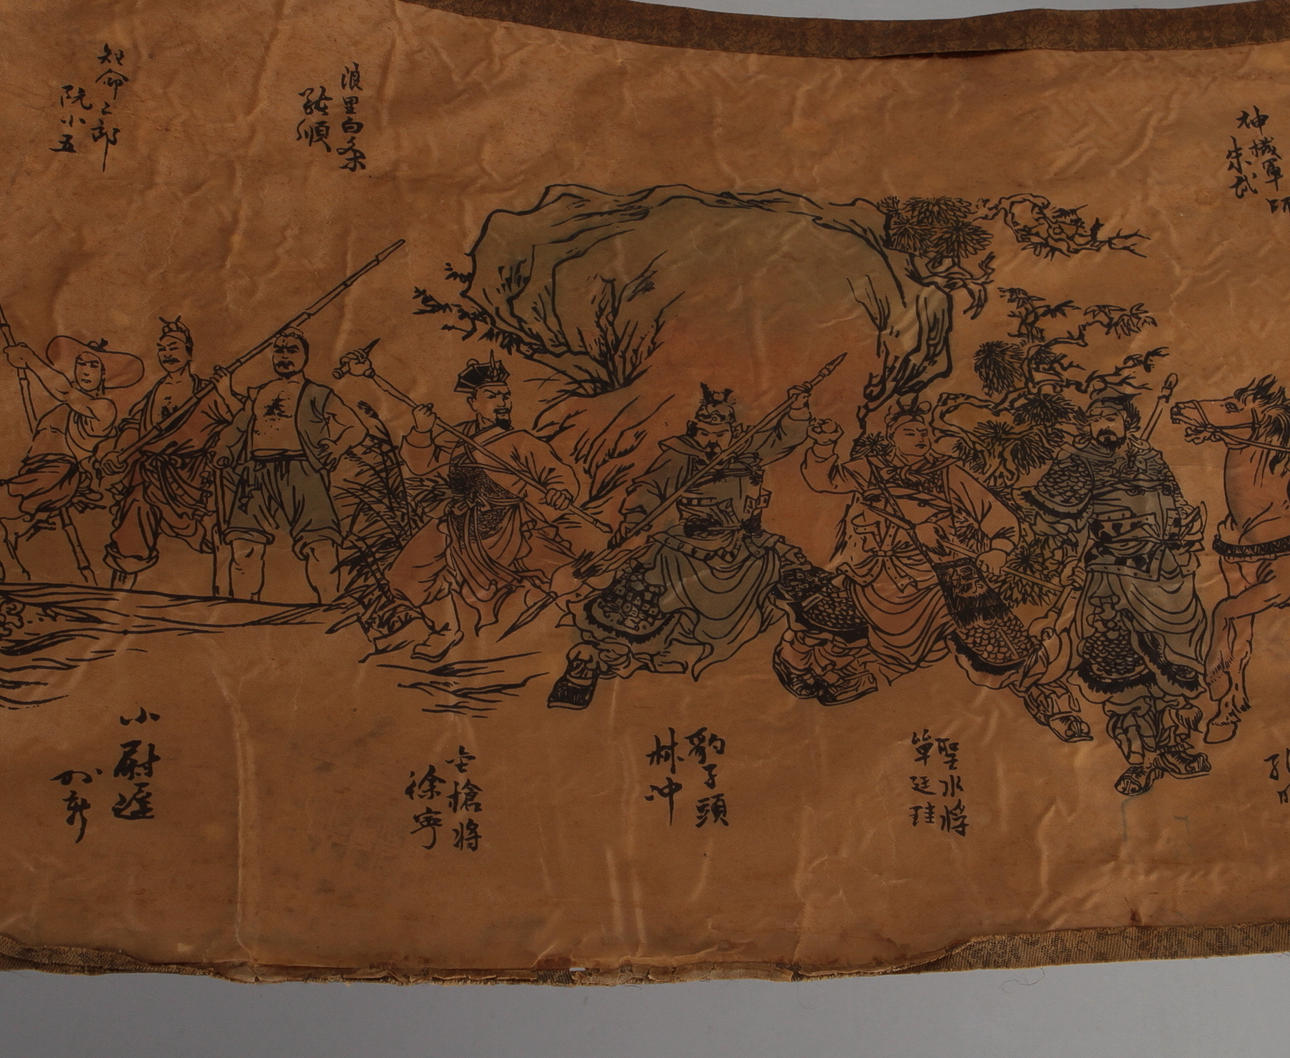 短命二郎
阮小五
浪里白条
張順
神機軍師
朱武
小尉遲
孙新
金槍將
徐寧
豹子頭
林冲
聖水將
單廷珪
孔